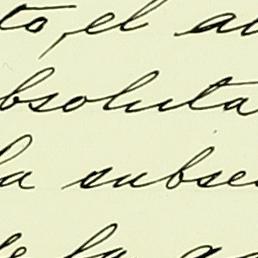 to, el au
bsoluta
la subse
de la a